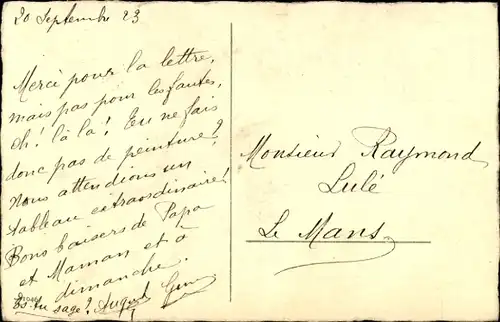 20 Septembre 23
Merci pour la lettre,
mais pas pour les fautes,
Oh! là là! Tu ne fais
donc pas de peinture?
Nous attendions un
tableau extraordinaire!
Bons baisers de Papa
et Maman et à
dimanche.
Es-tu sage?
Monsieur Raymond
Lulé
Le Mans